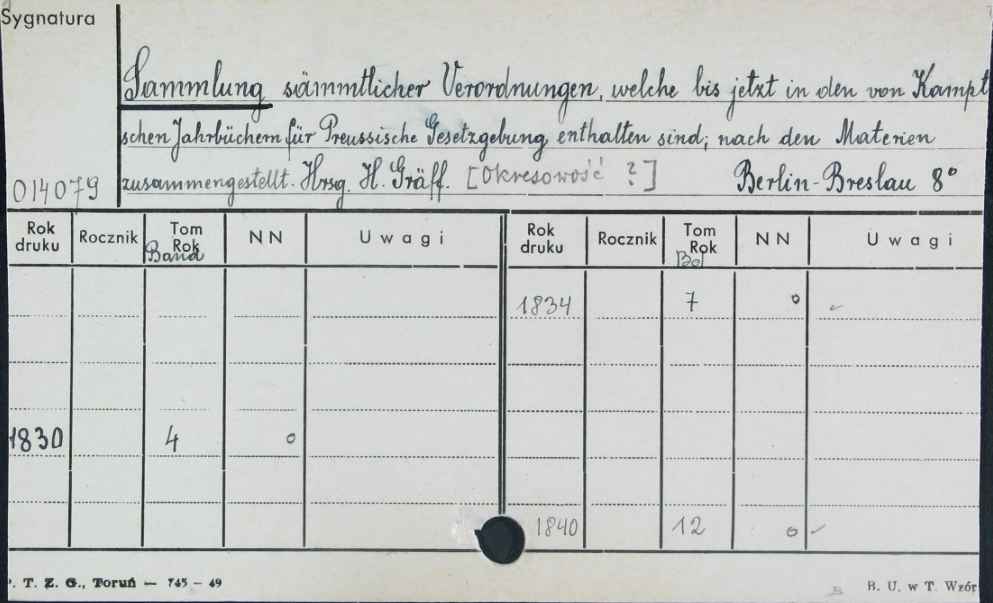 Sygnatura
Sammlung sämmtlicher Verordnungen, welche bis jetzt in den von Kampt
schen Jahrbüchern für Preussische Gesetzgebung enthalten sind; nach den Materien
014079 zusammengestellt. Hrsg. H. Gräff. [Okresowość ?] Berlin-Breslau 8°
Rok druku Rocznik Tom Rok Band NN Uwagi Rok druku Rocznik Tom Rok Bd NN Uwagi
1834 7 o ✓
1830 4 o
1840 12 o ✓
. T. Z. G., Toruń — 745 – 49 B. U. w T. Wzór